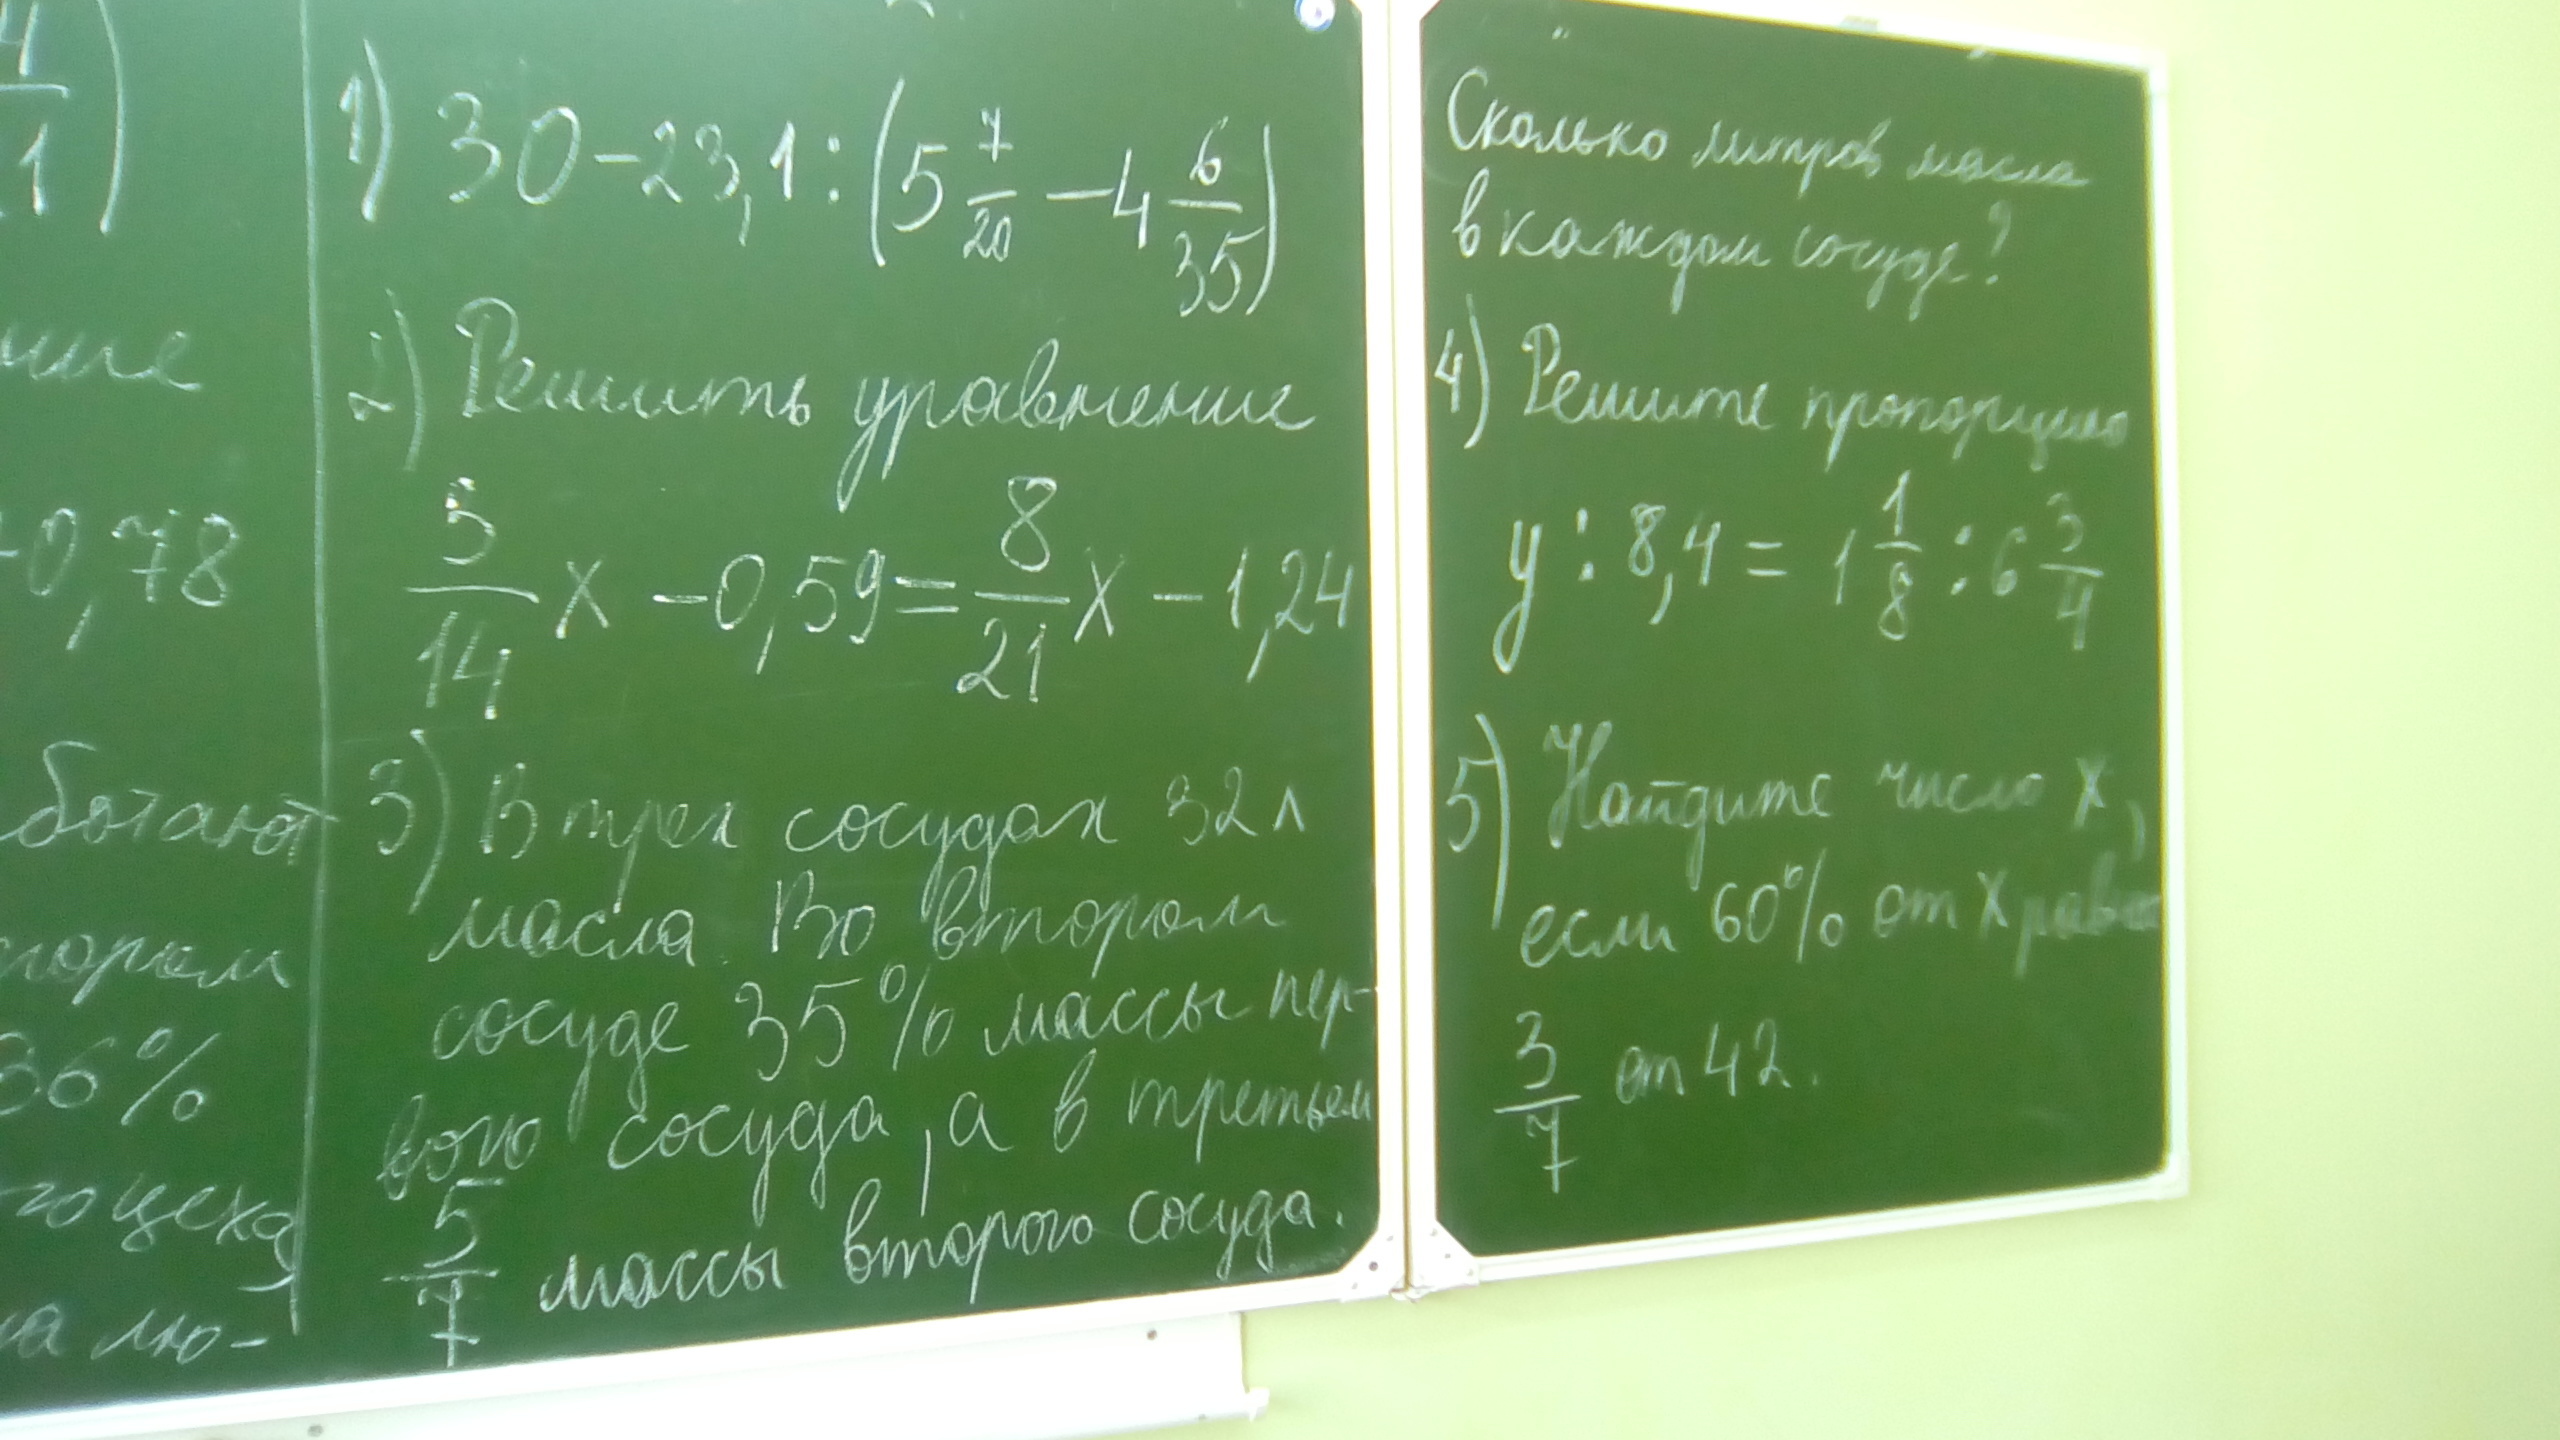 4/1
1) 30 - 23,1 : (5 7/20 - 4 6/35)
2) Решить уравнение
5/14 х - 0,59 = 8/21 х - 1,24
3) В трех сосудах 32 л
масла. Во втором
сосуде 35% массы пер-
вого сосуда, а в третьем
5/7 массы второго сосуда.
Сколько литров масла
в каждом сосуде?
4) Решите пропорцию
у : 8,4 = 1 1/8 : 6 3/4
5) Найдите число х,
если 60% от х равно
3/7 от 42.
ние
-0,78
ботают
тором
36%
-го цеха
на лю-